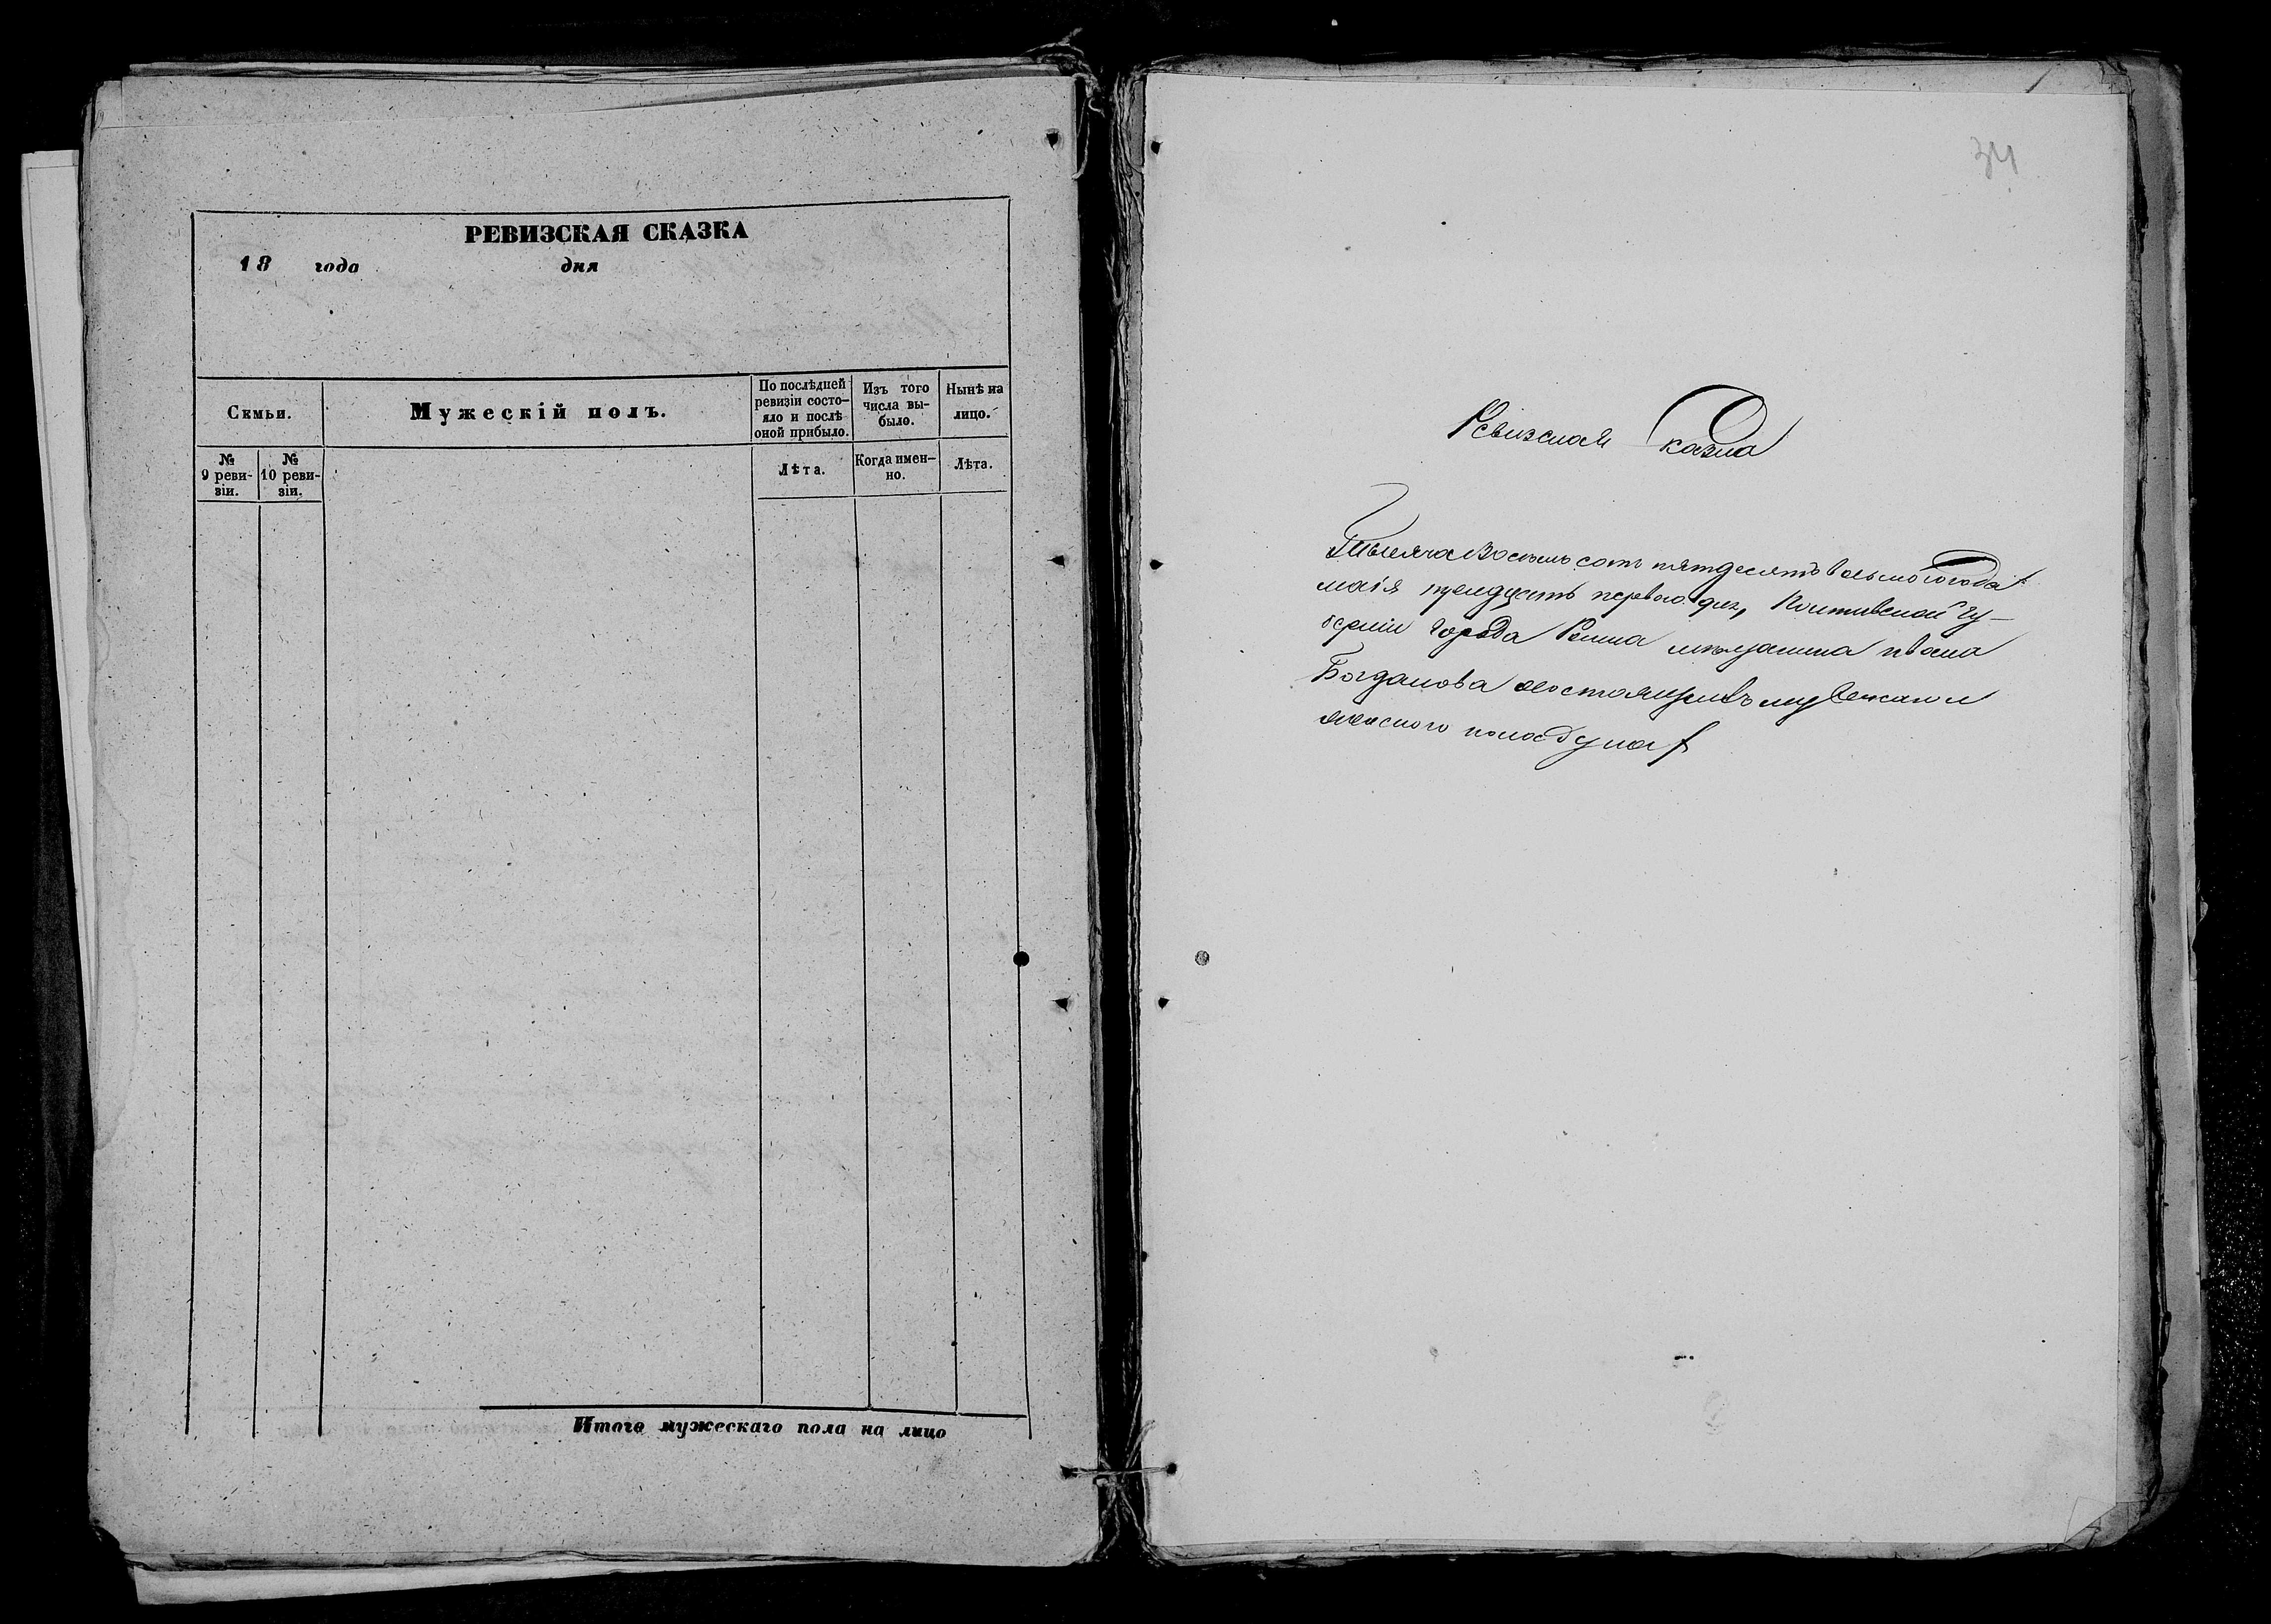 РЕВИЗСКАЯ СКАЗКА
18 года дня
Семьи.
Мужескій полъ.
По послѣдней ревизіи состо-
яло и послѣ
оной прибыло.
Изъ того
числа вы-
было.
Нынѣ на
лицо.
№
9 реви-
зіи.
№
10 реви-
зіи.
Лѣта.
Когда имен-
но.
Лѣта.
Итого мужескаго пола на лицо
34
Ревизская Сказка
Тысяча Восемьсотъ пятдесятъ восьмого года
маія тридцать первого дня, Полтавской гу-
берніи города Ромна мѣщанина Ивана
Богданова о состоящихъ мужеска и
женского пола